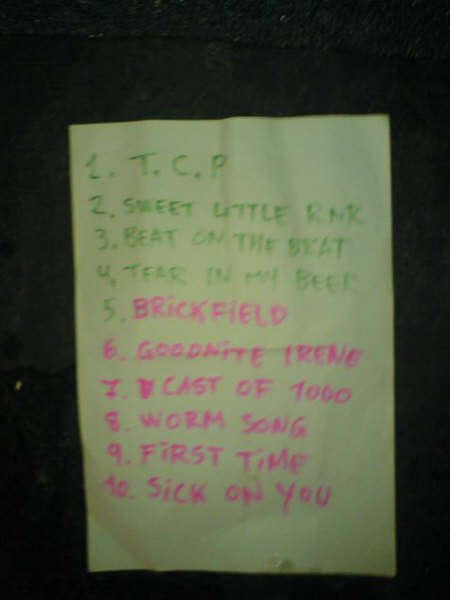 1. T.C.P
2. SWEET LITTLE RNR
3. BEAT ON THE BRAT
4. TEAR IN MY BEER
5. BRiCKFiELD
6. GOODNiTE IRENE
7. CAST OF 1000
8. WORM SONG
9. FiRST TiME
10. SiCK ON YOU